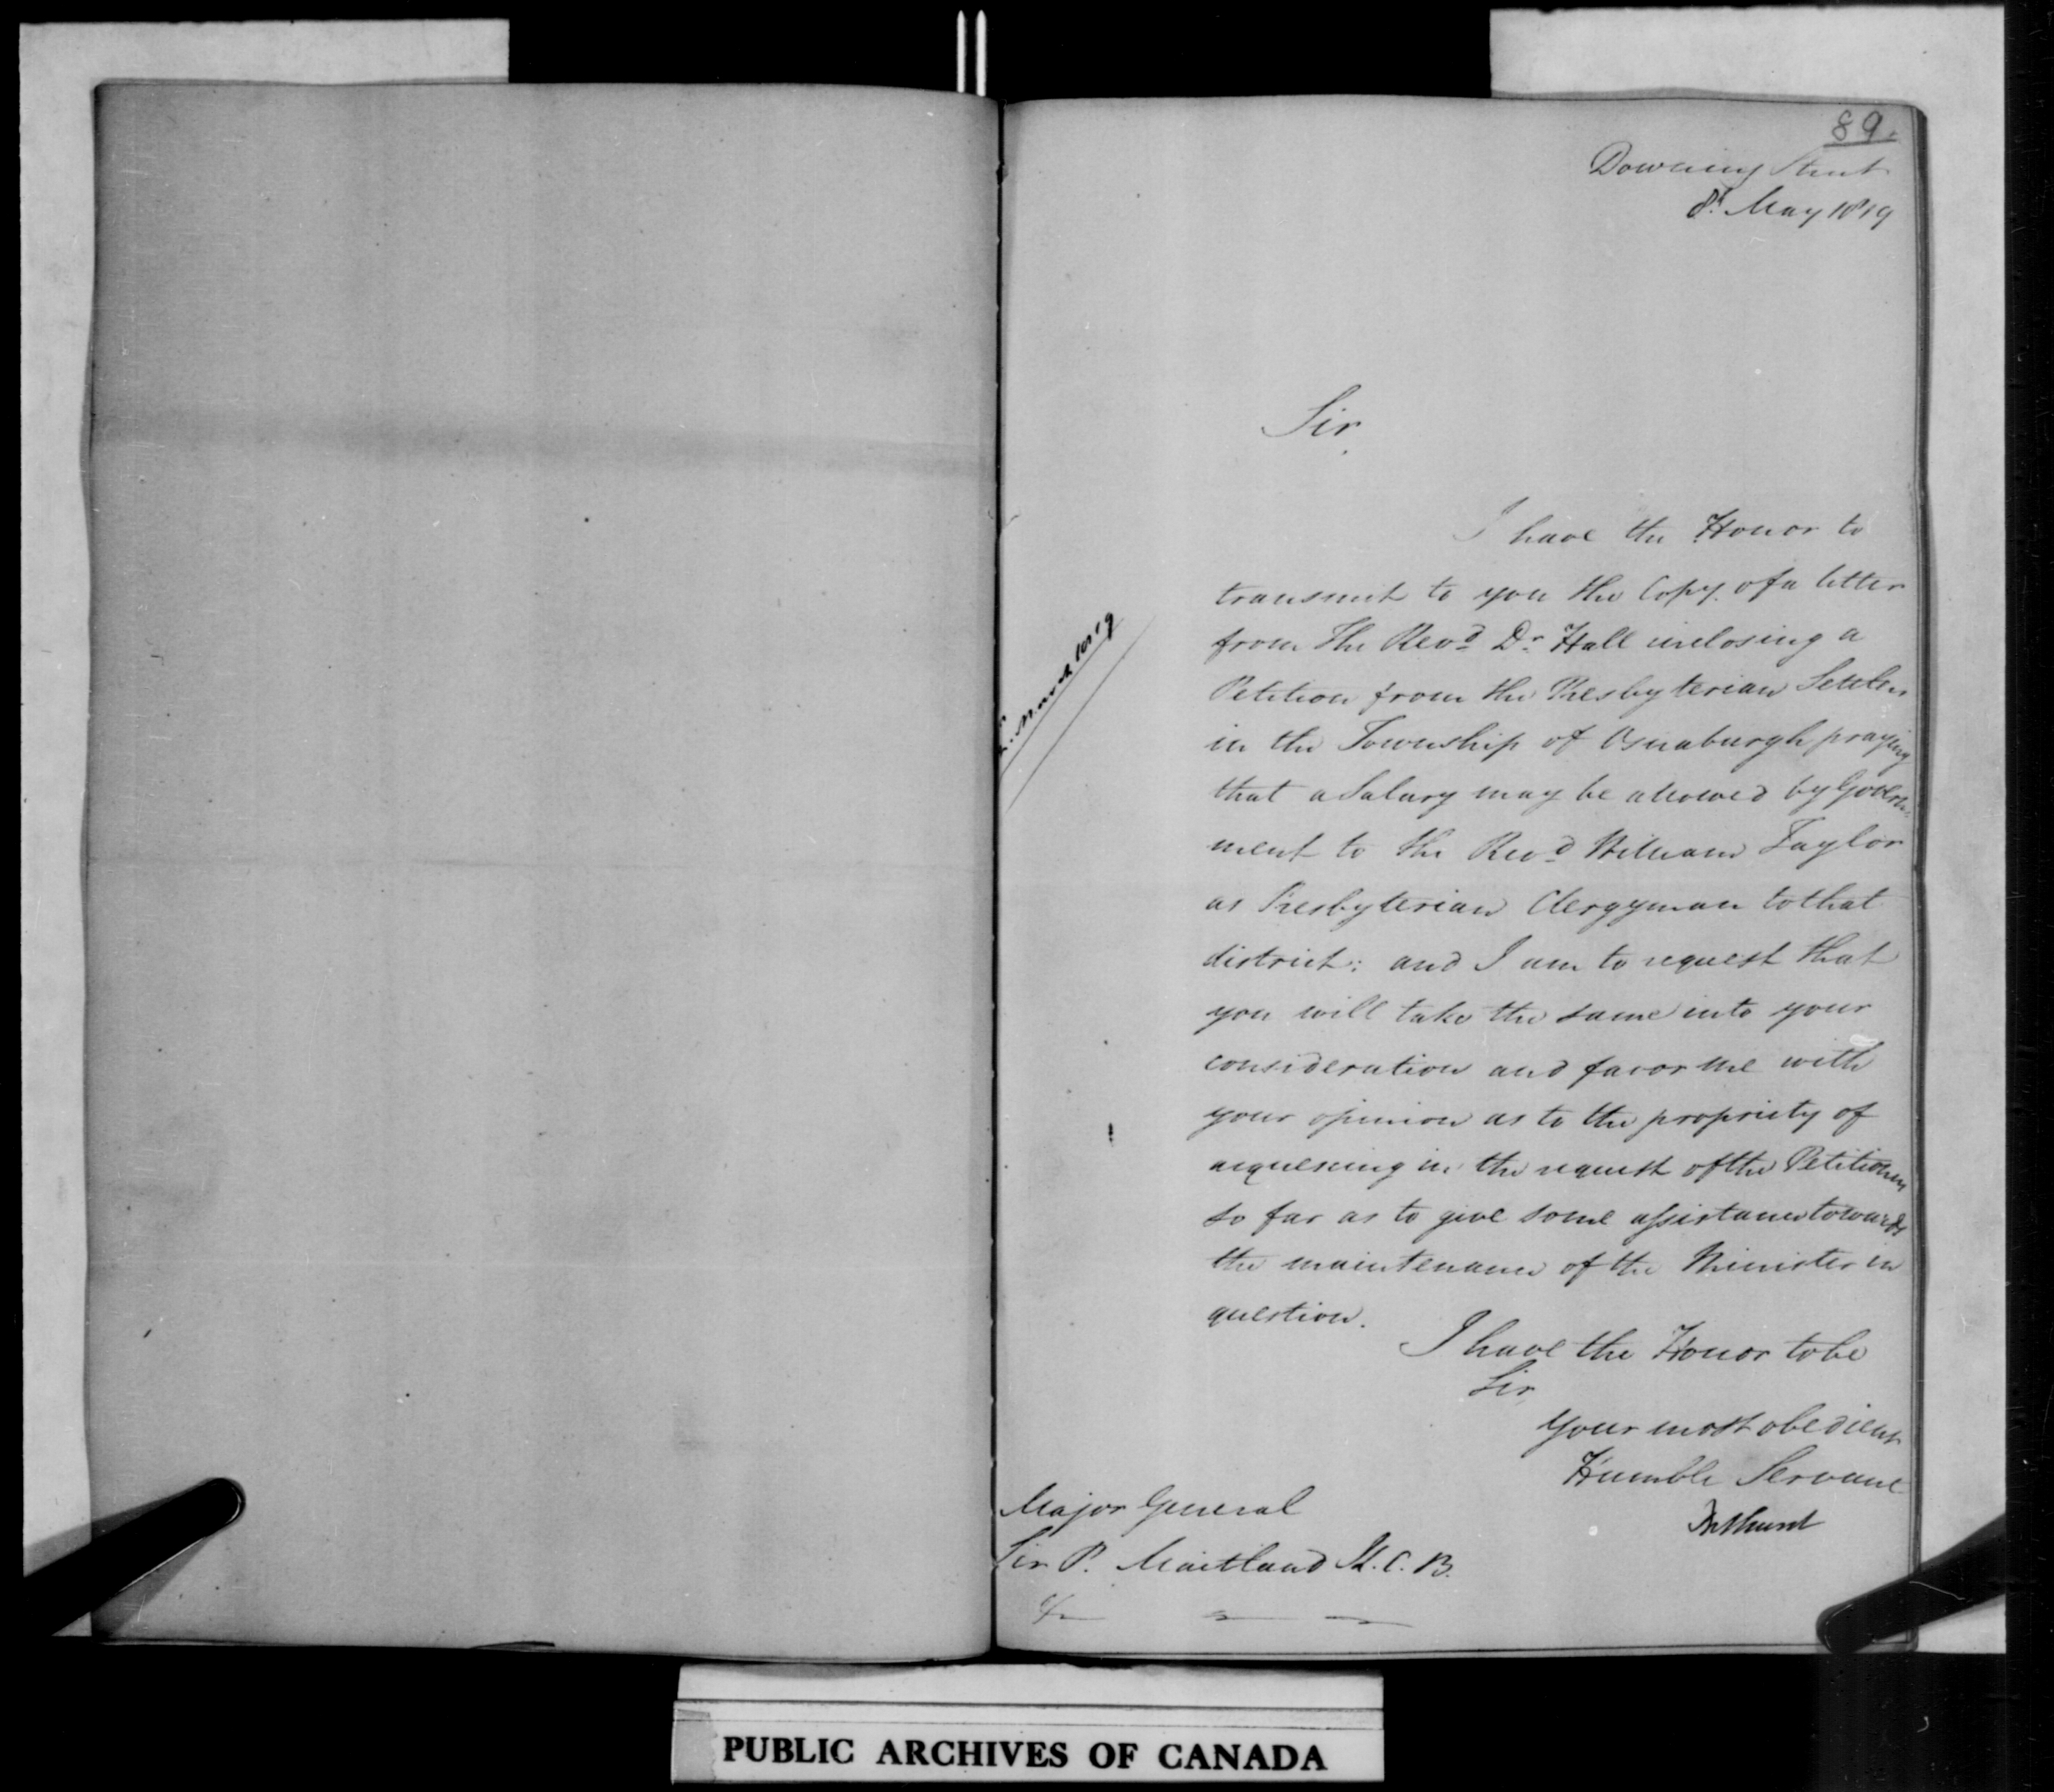 89.
Downing Street
8th May 1819
Sir,
I have the Honor to
transmit to you the Copy of a letter
from The Revd Dr Hall inclosing a
Petition from the Presbyterian Settlers
in the Township of Osnaburgh praying
that a Salary may be allowed by Govern-
ment to the Revd William Taylor
as Presbyterian Clergyman to that
district: and I am to request that
you will take the same into your
consideration and favor me with
your opinion as to the propriety of
acquiescing in the request of the Petitioners
so far as to give some assistance towards
the maintenance of the Minister in
question.
I have the Honor to be
Sir
Your most obedient
Humble Servant
Bathurst
Major General
Sir P. Maitland K.C.B.
&c
March 1819
PUBLIC ARCHIVES OF CANADA